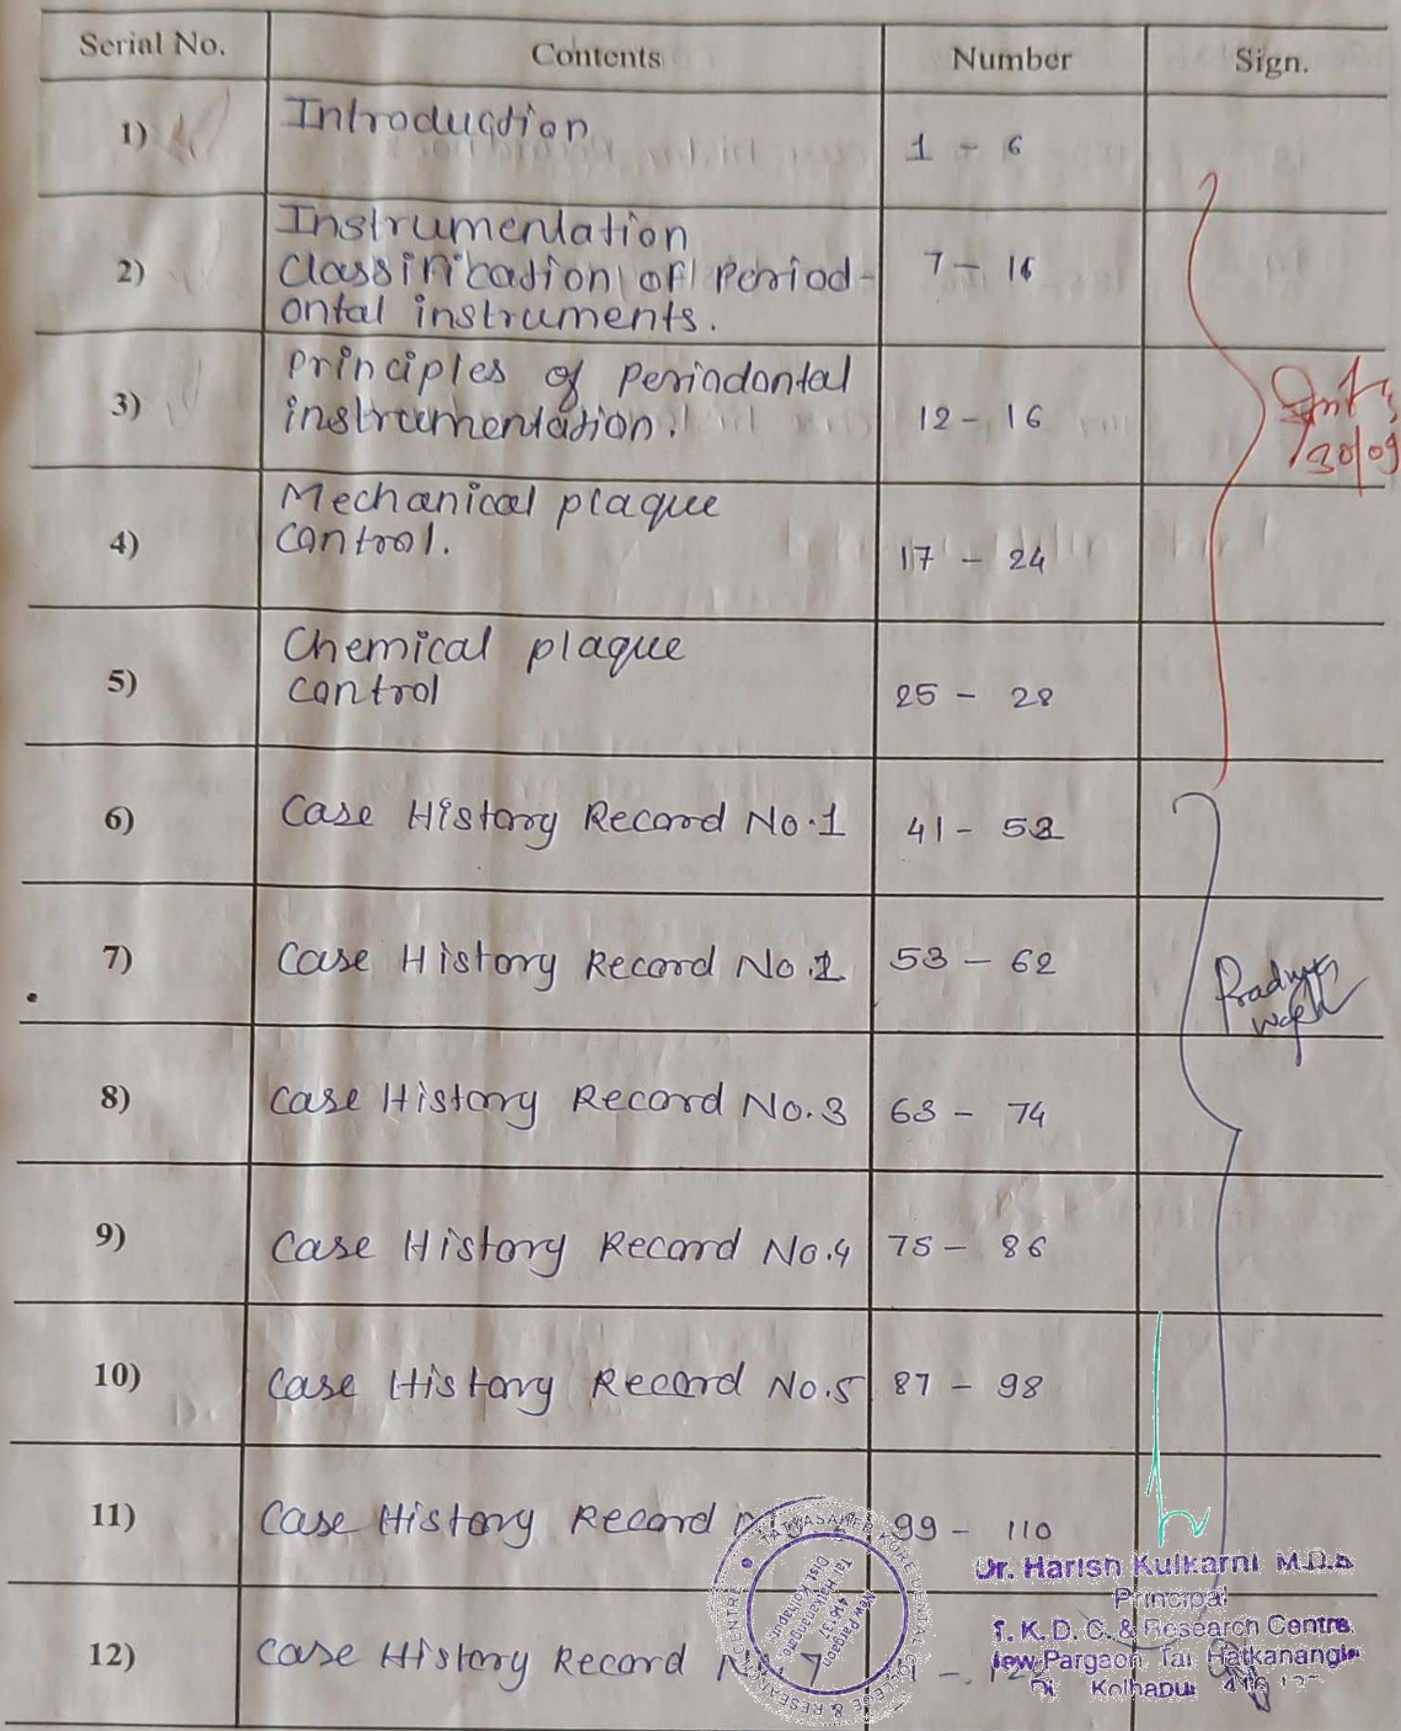 Serial No. Contents Number Sign.
1) Introduction 1 - 6
2) Instrumentation
Classification of Period-
ontal instruments. 7 - 16
3) Principles of Periodontal
instrumentation. 12 - 16
30/09
4) Mechanical plaque
control. 17 - 24
5) Chemical plaque
control 25 - 28
6) Case History Record No.1 41 - 52
7) Case History Record No.2 53 - 62
8) Case History Record No.3 63 - 74
9) Case History Record No.4 75 - 86
10) Case History Record No.5 87 - 98
11) Case History Record 99 - 110
12) Case History Record No. 7
TATYASAHEB KORE DENTAL COLLEGE & RESEARCH CENTRE
New Pargaon
Tal. Hatkanangale
Dist. Kolhapur.
Dr. Harish Kulkarni M.D.S
Principal
T. K. D. C. & Research Centre.
New Pargaon, Tal. Hatkanangle
Kolhapur